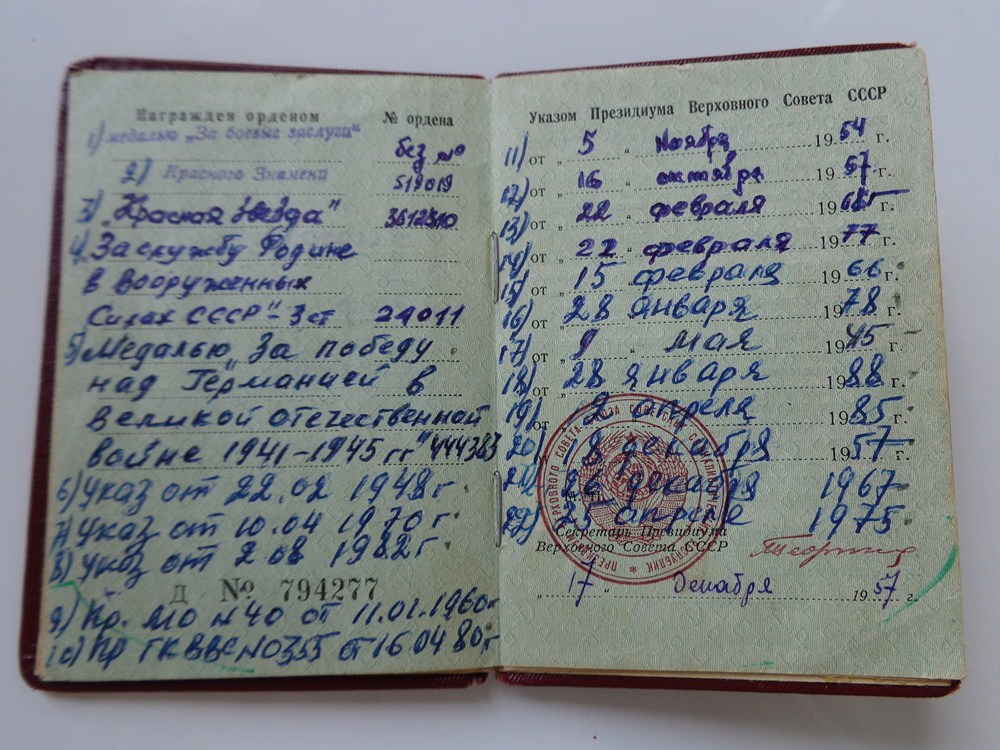 Награжден орденом № ордена
1) медалью „За боевые заслуги“ без №
2) Красного Знамени 519019
3) „Красная Звезда" 3612310
4) За службу Родине
в Вооруженных
Силах СССР" 3 ст 24011
5) Медалью „За победу
над Германией в
Великой отечественной
войне 1941-1945 гг" 444383
6) Указ от 22.02 1948 г
7) Указ от 10.04 1970 г.
8) Указ от 2 1982 г
Д № 794277
9) Пр. МО № 40 от 1960 г
10) Пр ГК ВВС № 0355 от 16 04 80 г
Указом Президиума Верховного Совета СССР
11) от „ 5 “ Ноября 1954 г.
12) от „ 16 “ октября 1957 г.
13) от „ 22 “ февраля 19 г.
14) от „ 22 февраля 1977 г.
15) от „ 15 февраля 1966 г.
16) от „ 28 января 1978 г.
17) от „ 9 “ мая 1945 г.
18) от 28 января 1988 г.
19) от 2 апреля 1985 г.
20) 8 декабря 1957 г.
21) 26 декабря 1967
22) 25 апреля 1975
Секретарь Президиума
Верховного Совета СССР
„ 17 “ Декабря 1957 г.